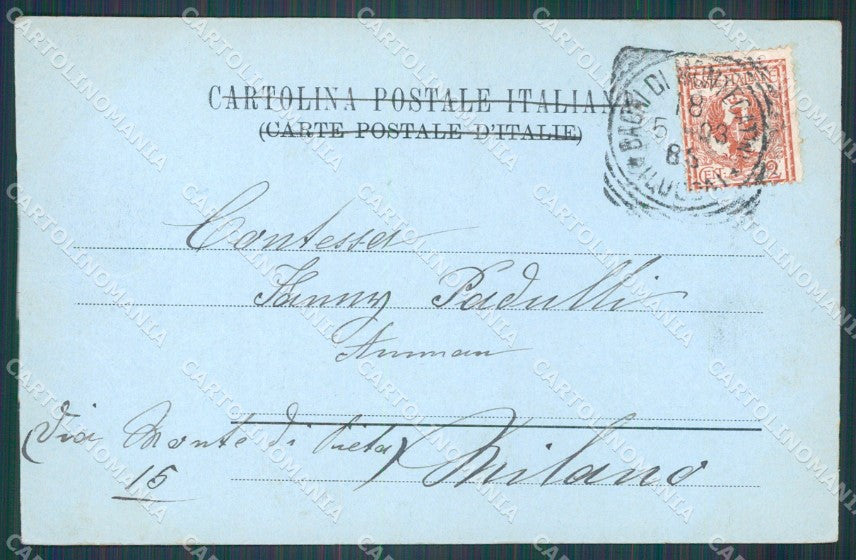 CARTOLINA POSTALE ITALIANA
(CARTE POSTALE D'ITALIE)
BAGNI DI
18
5 03
8S
Contessa
Fanny Padulli
Amman
(Via Monte di Pietà)
15
Milano
CARTOLINOMANIA